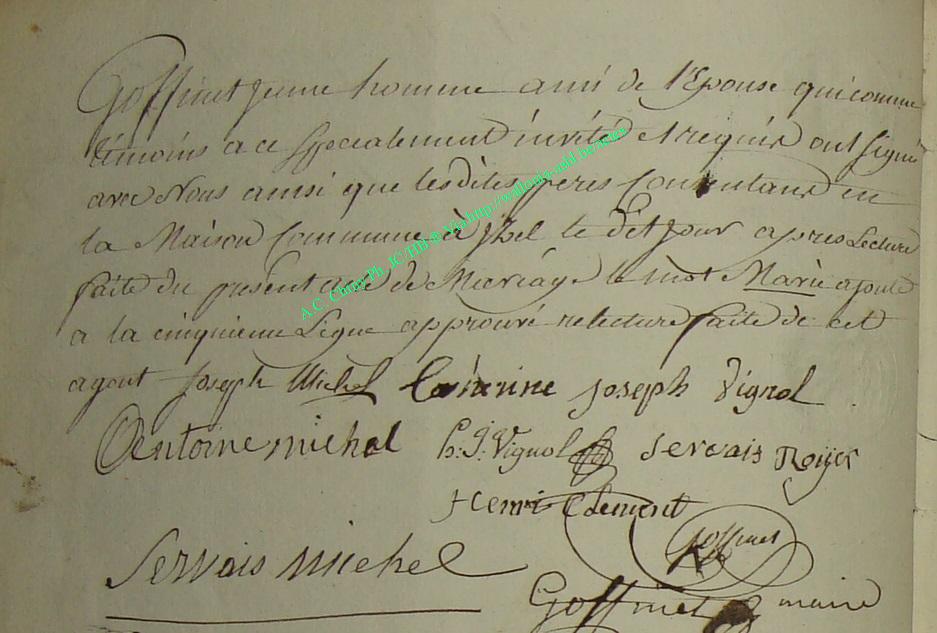 Goffinet jeune homme ami de l'Epouse qui comme
témoins a ce specialement invités et requis ont signé
avec Nous ainsi que les dites peres Consentans en
la Maison Commune à le dit jour apres Lecture
faite du présent acte de Mariage le mot Marie ajouté
a la cinquieme Ligne approuvé relecture faite de cet
agout Joseph Michel Joseph Vignol
Antoine michel h: J: Vignol Servais Roijer
Henri Clement
Goffinet
Servais Michel
Goffinet maire